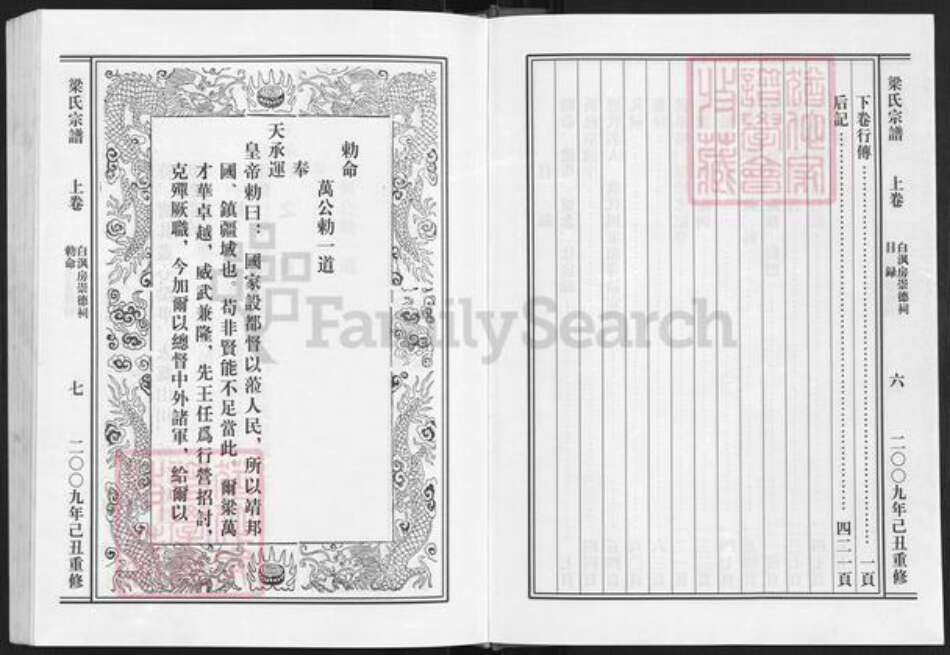 梁氏宗譜
上卷
白渢房崇德祠
目録
六
二〇〇九年己丑重修
下卷行傳 一頁
后記 四二一頁
猶他家譜學會收藏
FamilySearch
勅命
萬公勅一道
奉
天承運
皇帝勅曰：國家設都督以蒞人民，所以靖邦
國、鎮疆域也。苟非賢能不足當此 爾梁萬
才華卓越，威武兼隆，先王任爲行營招討，
克殫厥職，今加爾以總督中外諸軍，給爾以
梁氏宗譜
上卷
白渢房崇德祠
勅命
七
二〇〇九年己丑重修